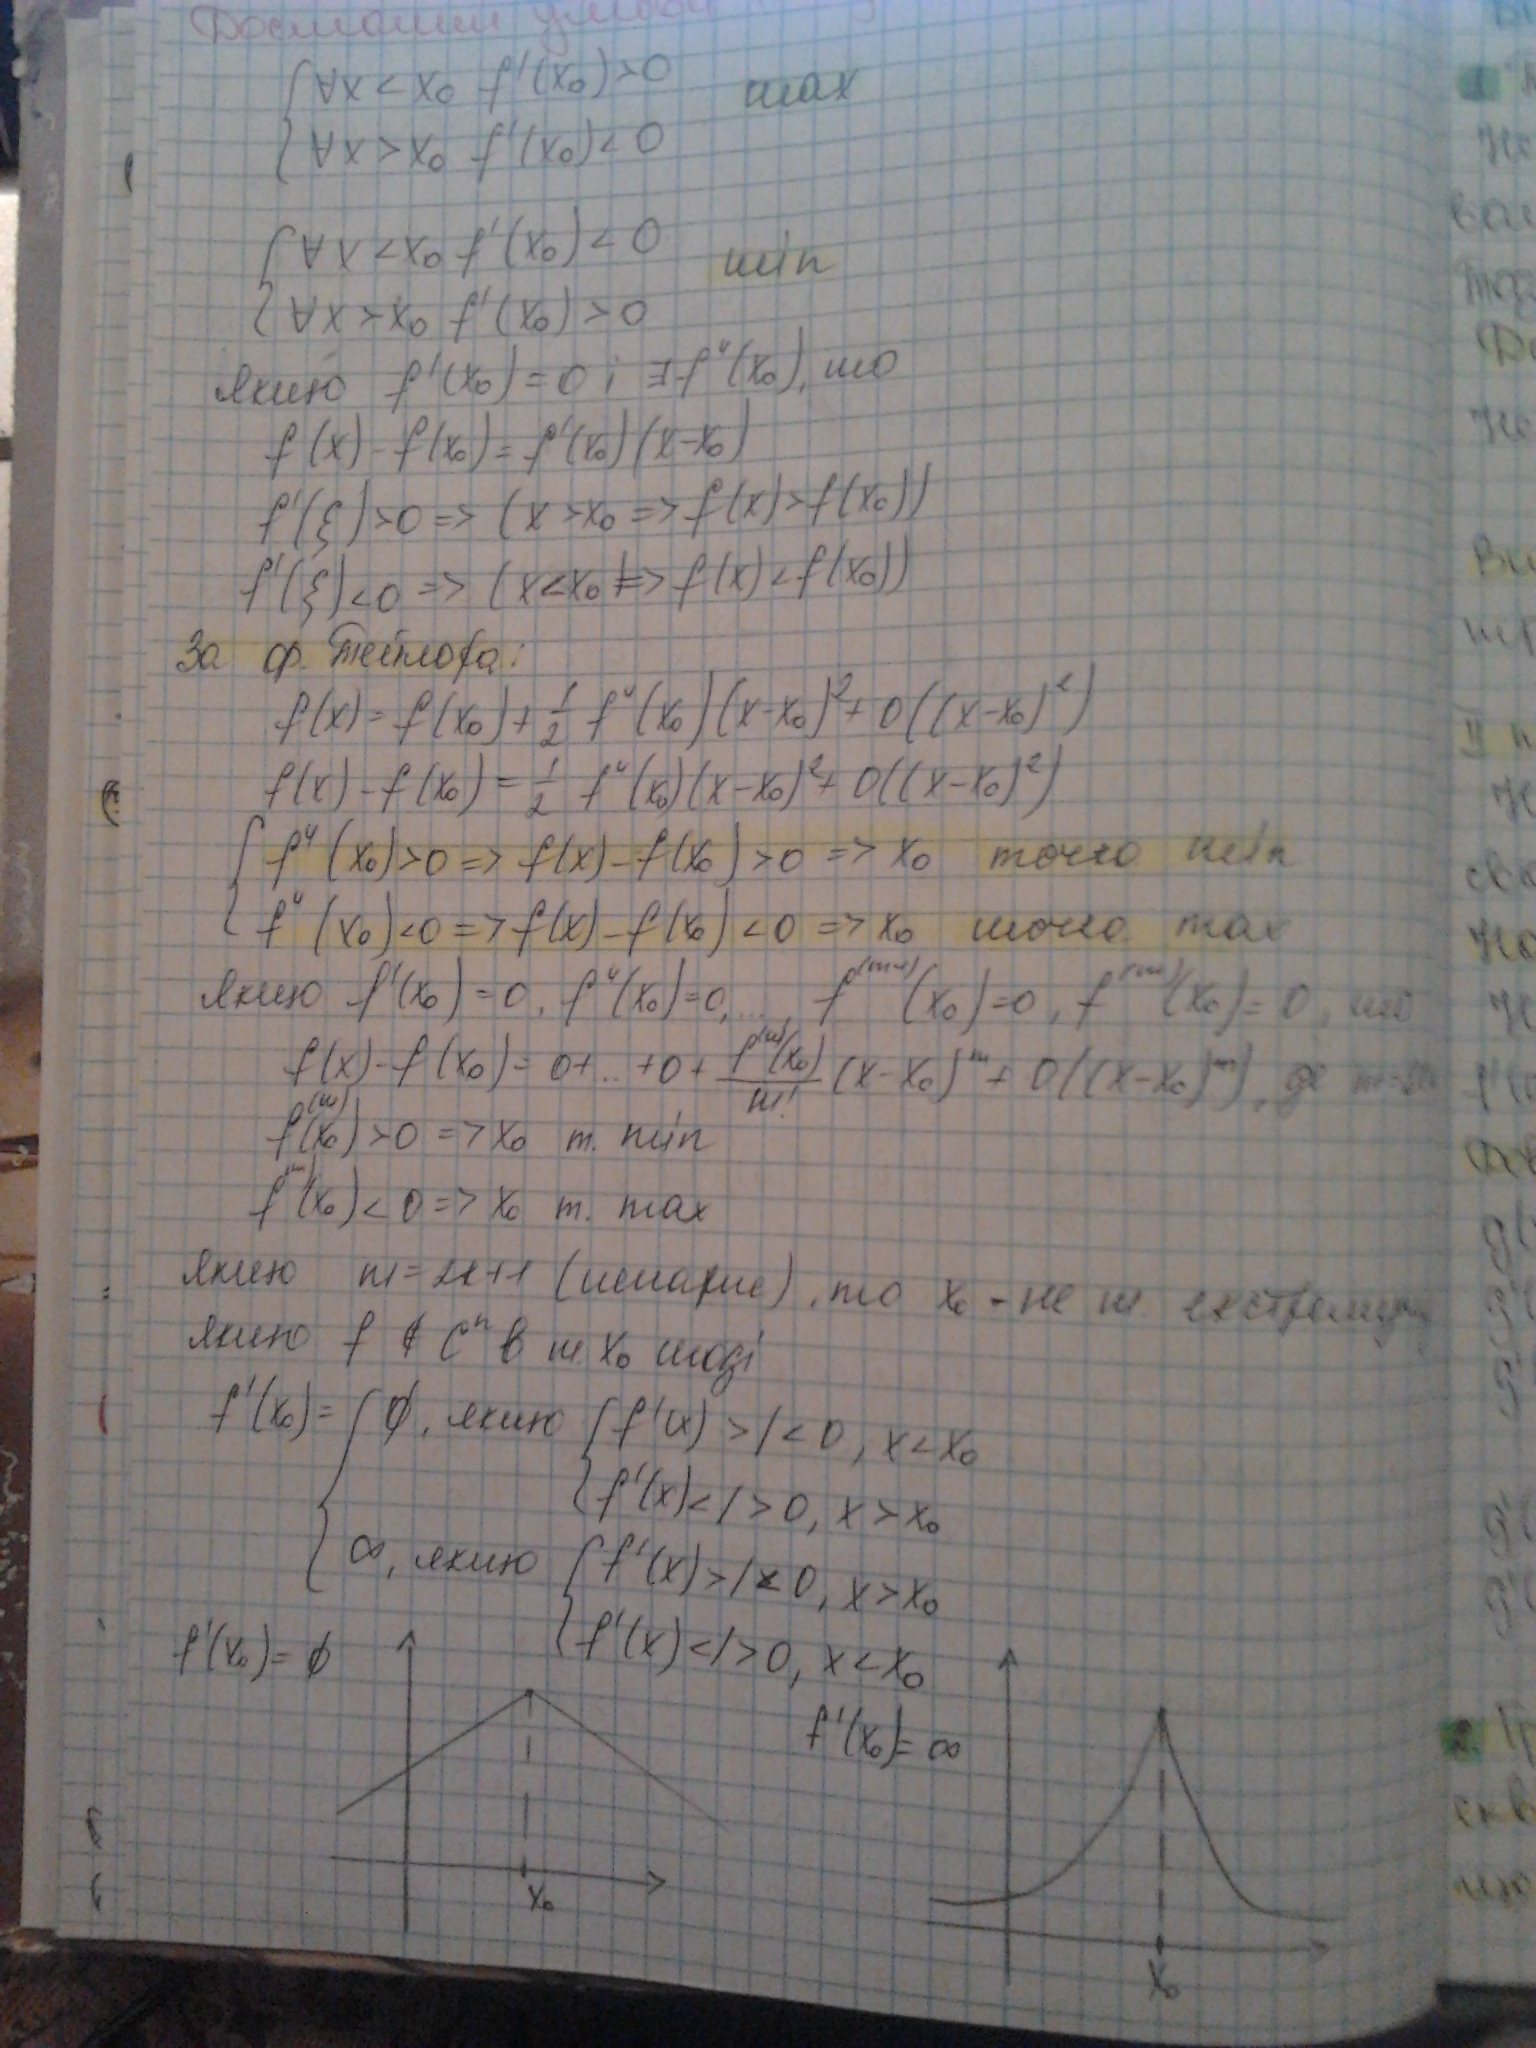 Достатні умови
{∀x<x₀ f'(x₀)>0
max
{∀x>x₀ f'(x₀)<0
{∀x<x₀ f'(x₀)<0
min
{∀x>x₀ f'(x₀)>0
Якщо f'(x₀)=0 і ∃f''(x₀), то
f(x)-f(x₀)=f'(x₀)(x-x₀)
f'(ξ)>0=>(x>x₀=>f(x)>f(x₀))
f'(ξ)<0=>(x<x₀=>f(x)<f(x₀))
За ф. Тейлора:
f(x)=f(x₀)+1/2 f''(x₀)(x-x₀)²+o((x-x₀)²)
f(x)-f(x₀)=1/2 f''(x₀)(x-x₀)²+o((x-x₀)²)
{f''(x₀)>0=>f(x)-f(x₀)>0=>x₀ точка min
{f''(x₀)<0=>f(x)-f(x₀)<0=>x₀ точка max
Якщо f'(x₀)=0, f''(x₀)=0,..., (x₀)=0, (x₀)=0, то
f(x)-f(x₀)=0+..+0+f⁽ᵐ⁾(x₀)/m! (x-x₀)ᵐ+o((x-x₀)ᵐ), де
f⁽ᵐ⁾(x₀)>0=>x₀ т. min
f⁽ᵐ⁾(x₀)<0=>x₀ т. max
Якщо (непарне), то x₀ - не т. екстремуму
Якщо f ∉ Cⁿ в т. x₀ тоді
f'(x₀)={∅, якщо {f'(x)>/<0, x<x₀
{f'(x)</>0, x>x₀
∞, якщо {f'(x)>/<0, x>x₀
{f'(x)</>0, x<x₀
f'(x₀)=∅
f'(x₀)=∞
x₀
x₀